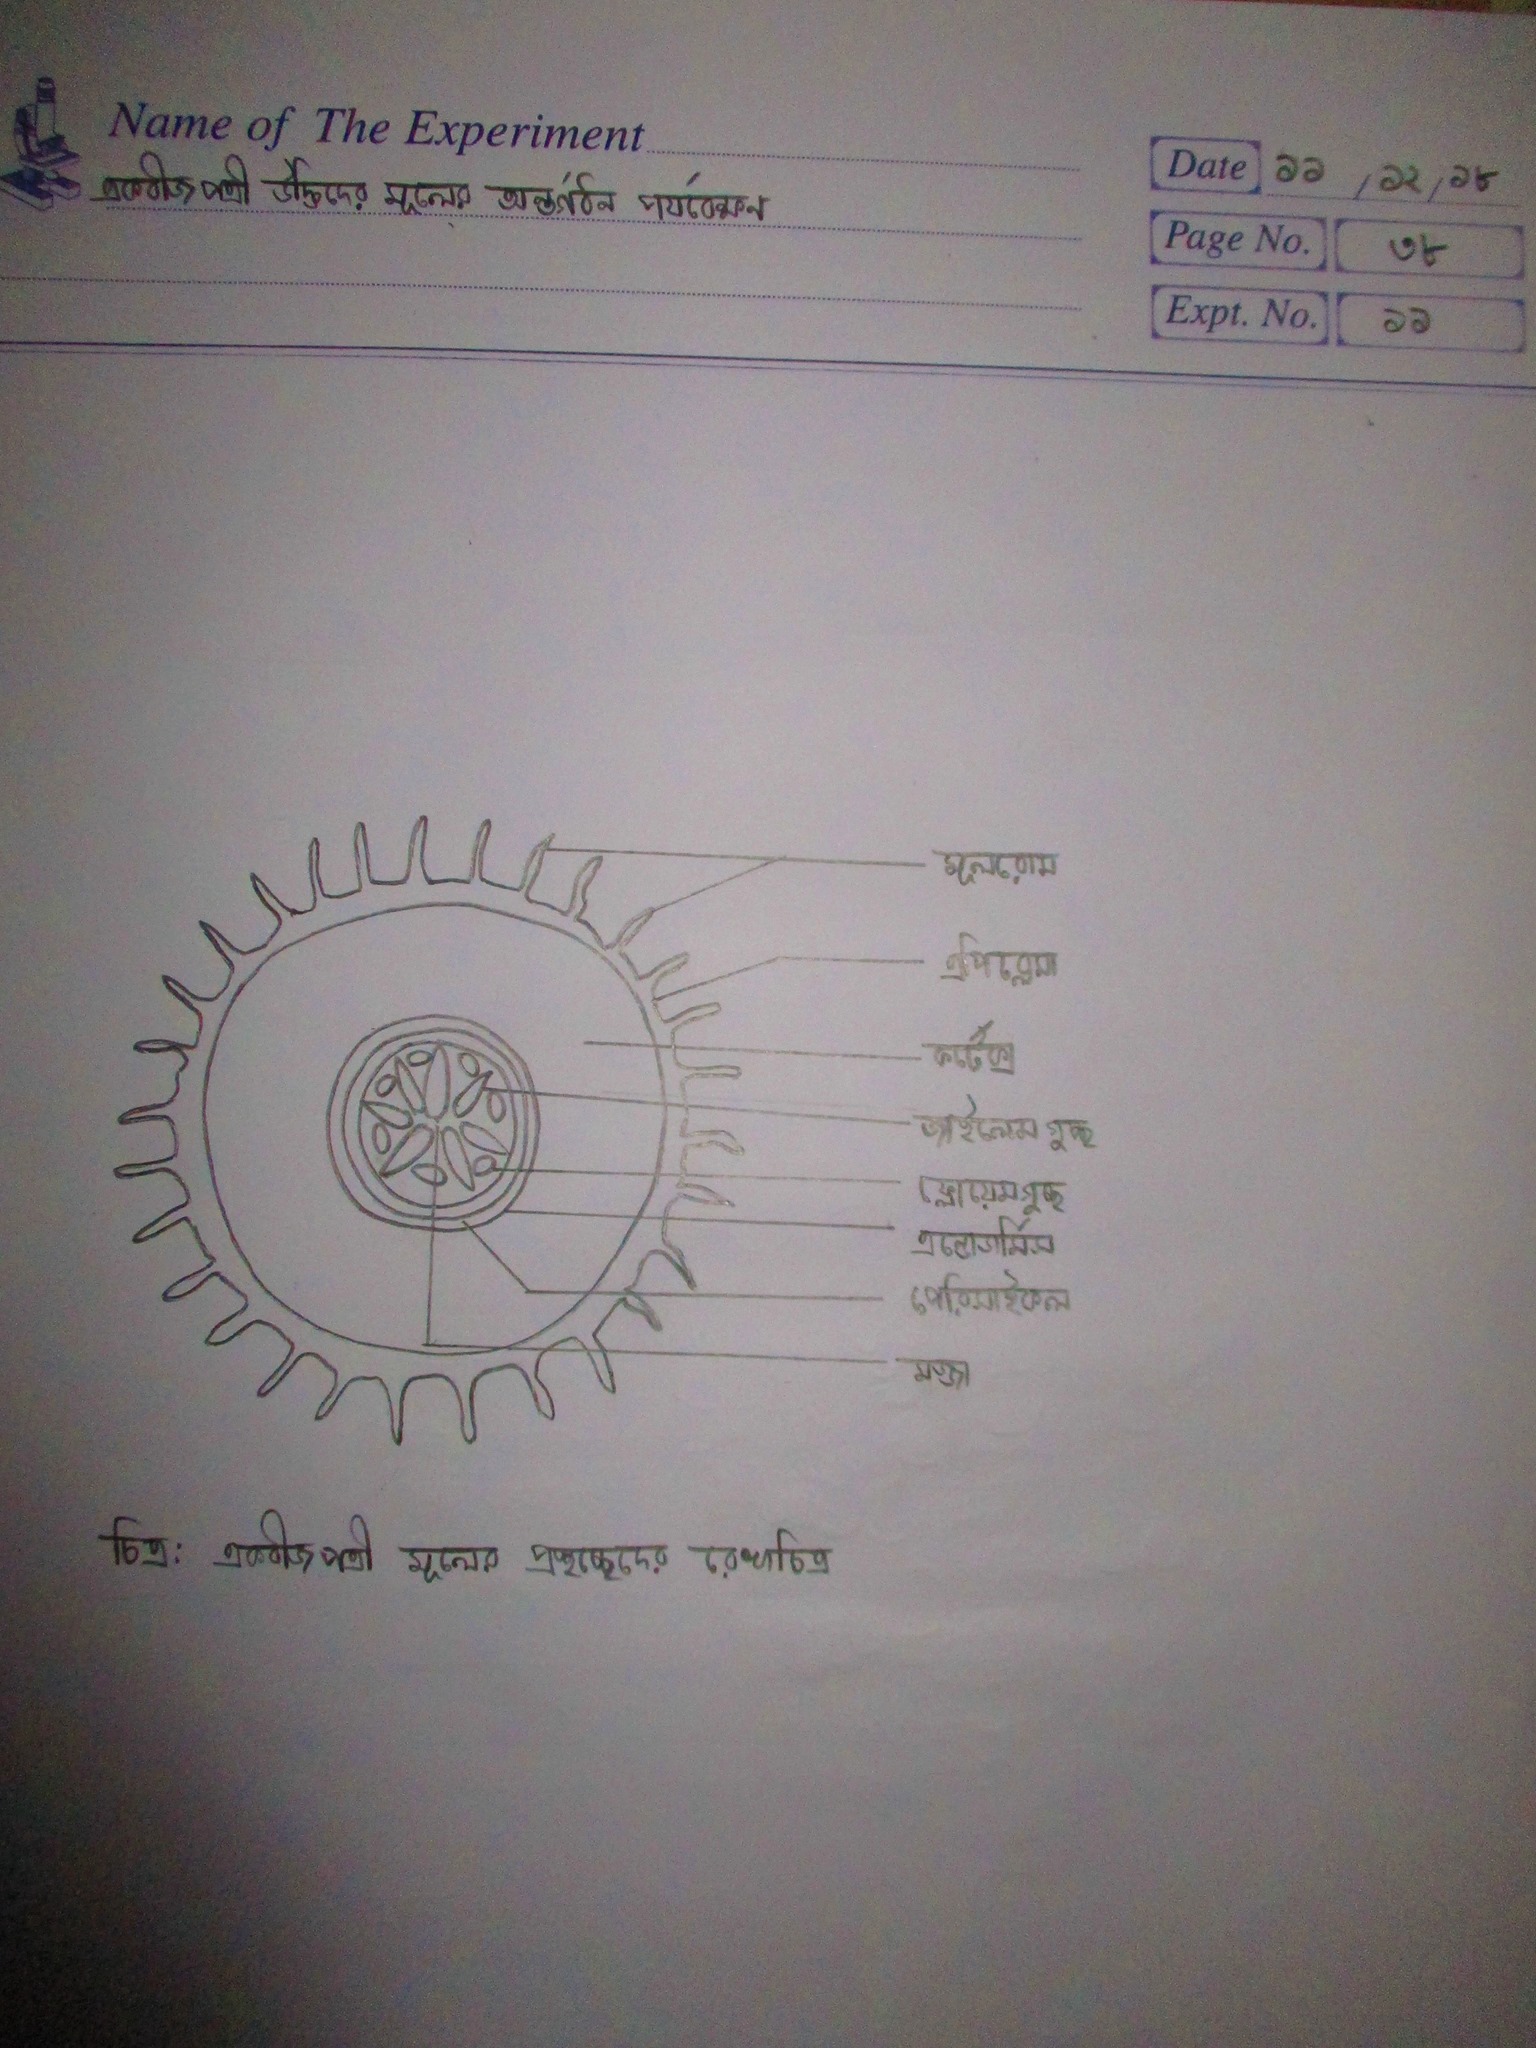 Name of The Experiment
একবীজপত্রী উদ্ভিদের মূলের অন্তর্গঠন পর্যবেক্ষন
Date ১১ / ১২ / ১৮
Page No. ৩৮
Expt. No. ১১
মূলরোম
এপিব্লেমা
কর্টেক্স
জাইলেম গুচ্ছ
ফ্লোয়েমগুচ্ছ
এন্ডোডার্মিস
পেরিসাইকল
মজ্জা
চিত্র: একবীজপত্রী মূলের প্রস্থচ্ছেদের রেখাচিত্র